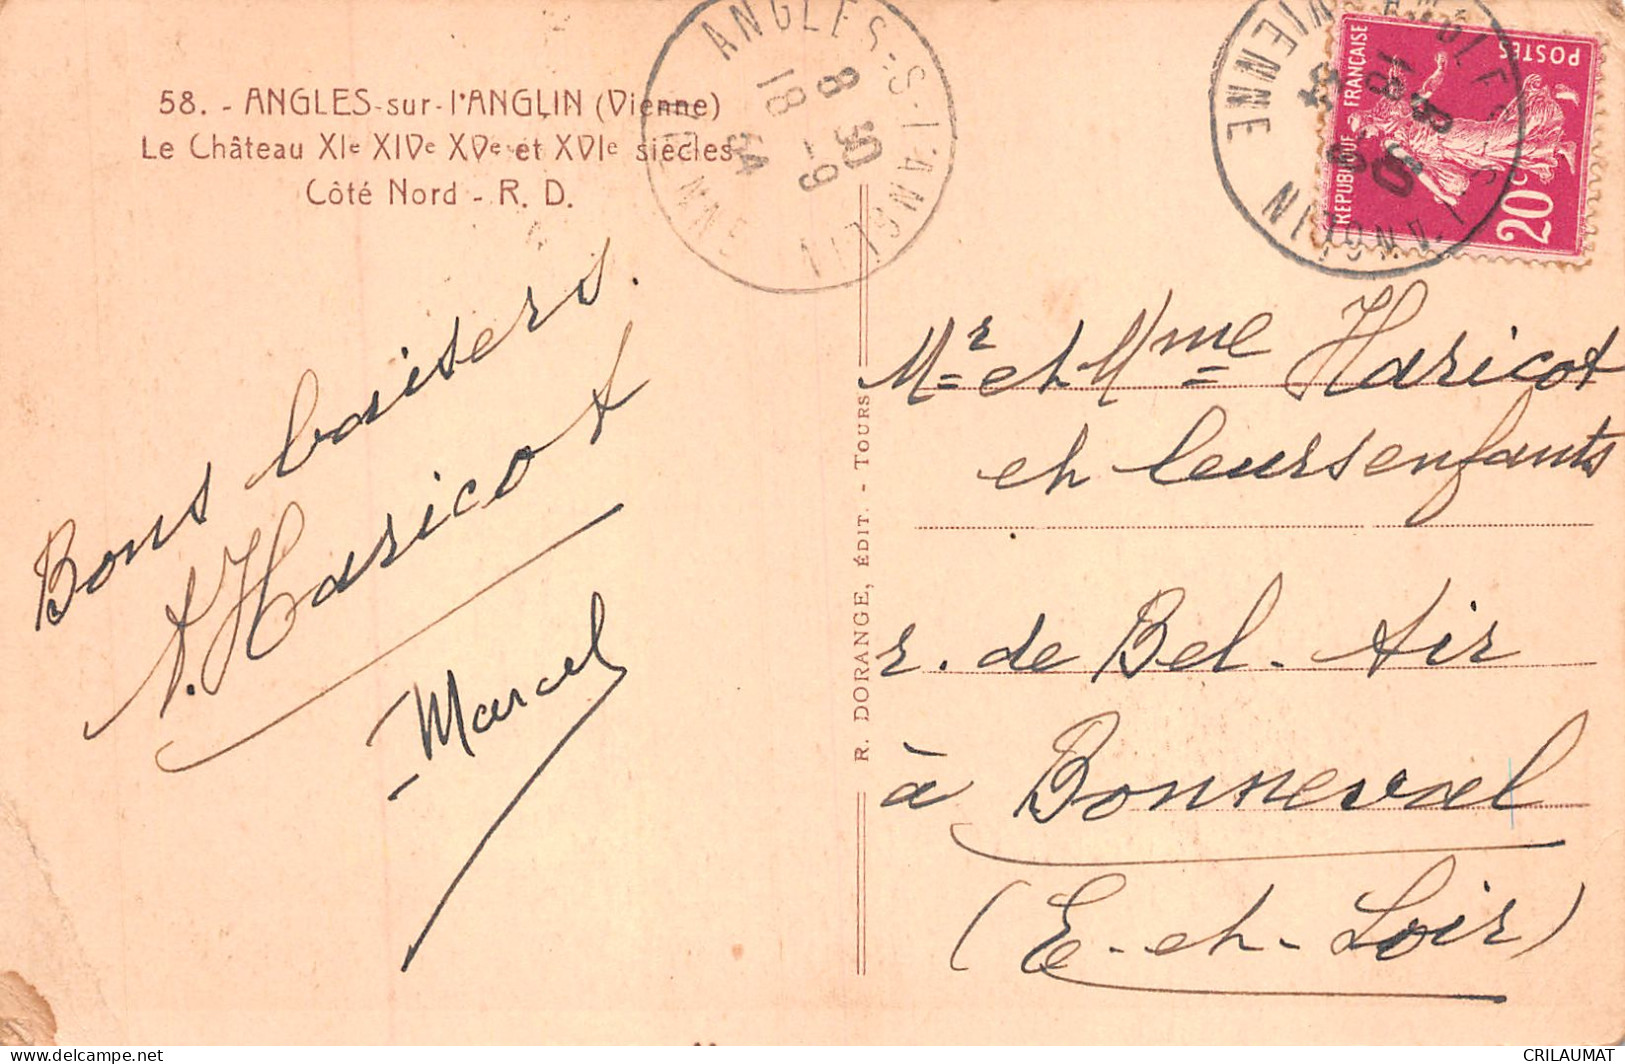 58. - ANGLES-sur-l'ANGLIN (Vienne)
Le Château XIe XIVe XVe et XVIe siècles
Côté Nord - R. D.
ANGLES-S-L'ANGLIN
8 30
18 -9
34
VIENNE
RÉPUBLIQUE FRANÇAISE
POSTES
20c
Bons baisers.
A. Haricot
Marcel
R. DORANGE, ÉDIT. - TOURS
Mr et Mme Haricot
et leurs enfants
r. de Bel-Air
à Bonneval
(E-et-Loir)
CRILAUMAT